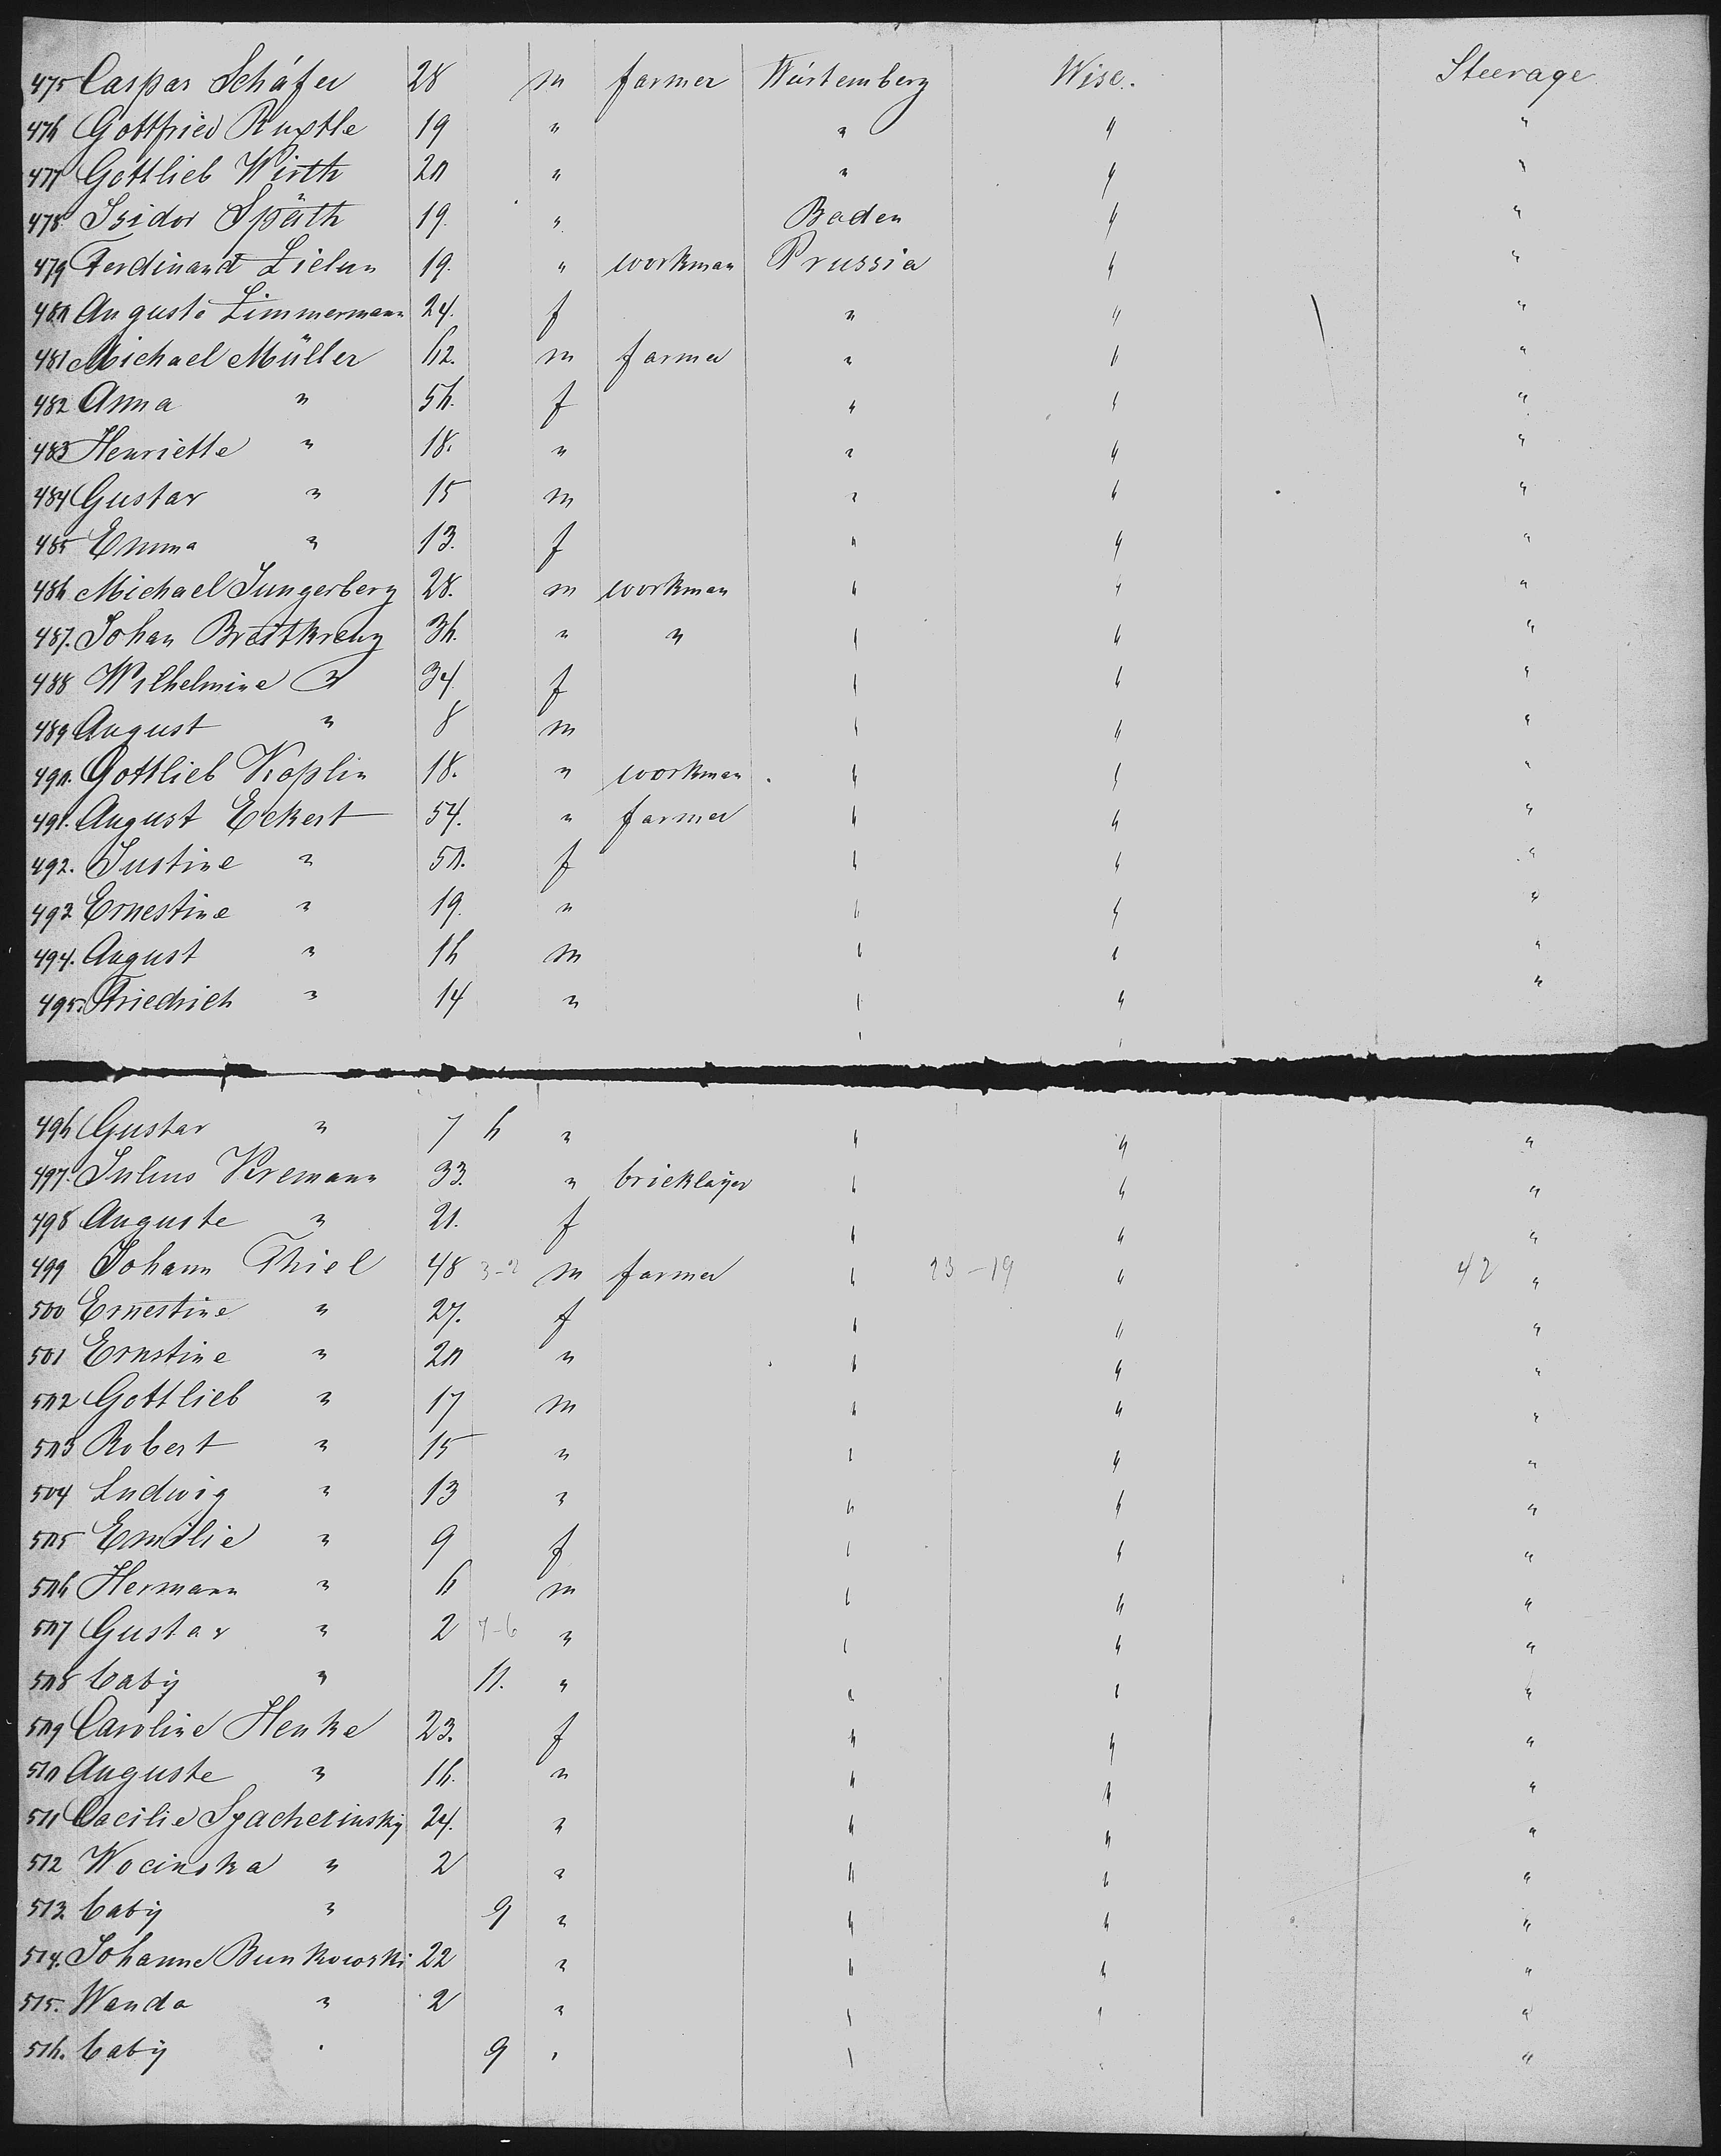 475 Caspar Schäfer 28 m farmer Würtemberg Wisc. Steerage
476 Gottfried Ruxtle 19 " " " "
477 Gottlieb Wirth 20 " " " "
478 Isidor Späth 19. " Baden " "
479 Ferdinand Zielun 19. " workman Prussia " "
480 Auguste Zimmermann 24. f " " "
481 Michael Müller 62. m farmer " " "
482 Anna " 56. f " " "
483 Henriette " 18. " " " "
484 Gustav " 15 m " " "
485 Emma " 13. f " " "
486 Michael Jungerberg 28. m workman " " "
487. Johan Breitkreuz 36. " " " " "
488 Wilhelmine " 34 f " " "
489 August " 8 m " " "
490. Gottlieb Koplin 18. " workman " " "
491. August Eckert 54. " farmer " " "
492. Justine " 50. f " " "
493 Ernestine " 19. " " " "
494. August " 16 m " " "
495. Friedrich " 14 " " " "
496 Gustav " 7 6 " " " "
497. Julius Viremann 33. " bricklayer " " "
498 Auguste " 21. f " " "
499 Johann Thiel 48 3-2 m farmer " 23-19 " 42 "
500 Ernestine " 27. f " " "
501 Ernstine " 20 " " " "
502 Gottlieb " 17 m " " "
503 Robert " 15 " " " "
504 Ludwig " 13 " " " "
505 Emilie " 9 f " " "
506 Hermann " 6 m " " "
507 Gustav " 2 7-6 " " " "
508 baby " 11. " " " "
509 Caroline Henke 23. f " " "
510 Auguste " 16. " " " "
511 Cacilie Syacherinsky 24. " " " "
512 Wocinska " 2 " " " "
513. baby " 9 " " " "
514. Johanne Bunkowski 22 " " " "
515. Wanda " 2 " " " "
516. baby " 9 " " " "